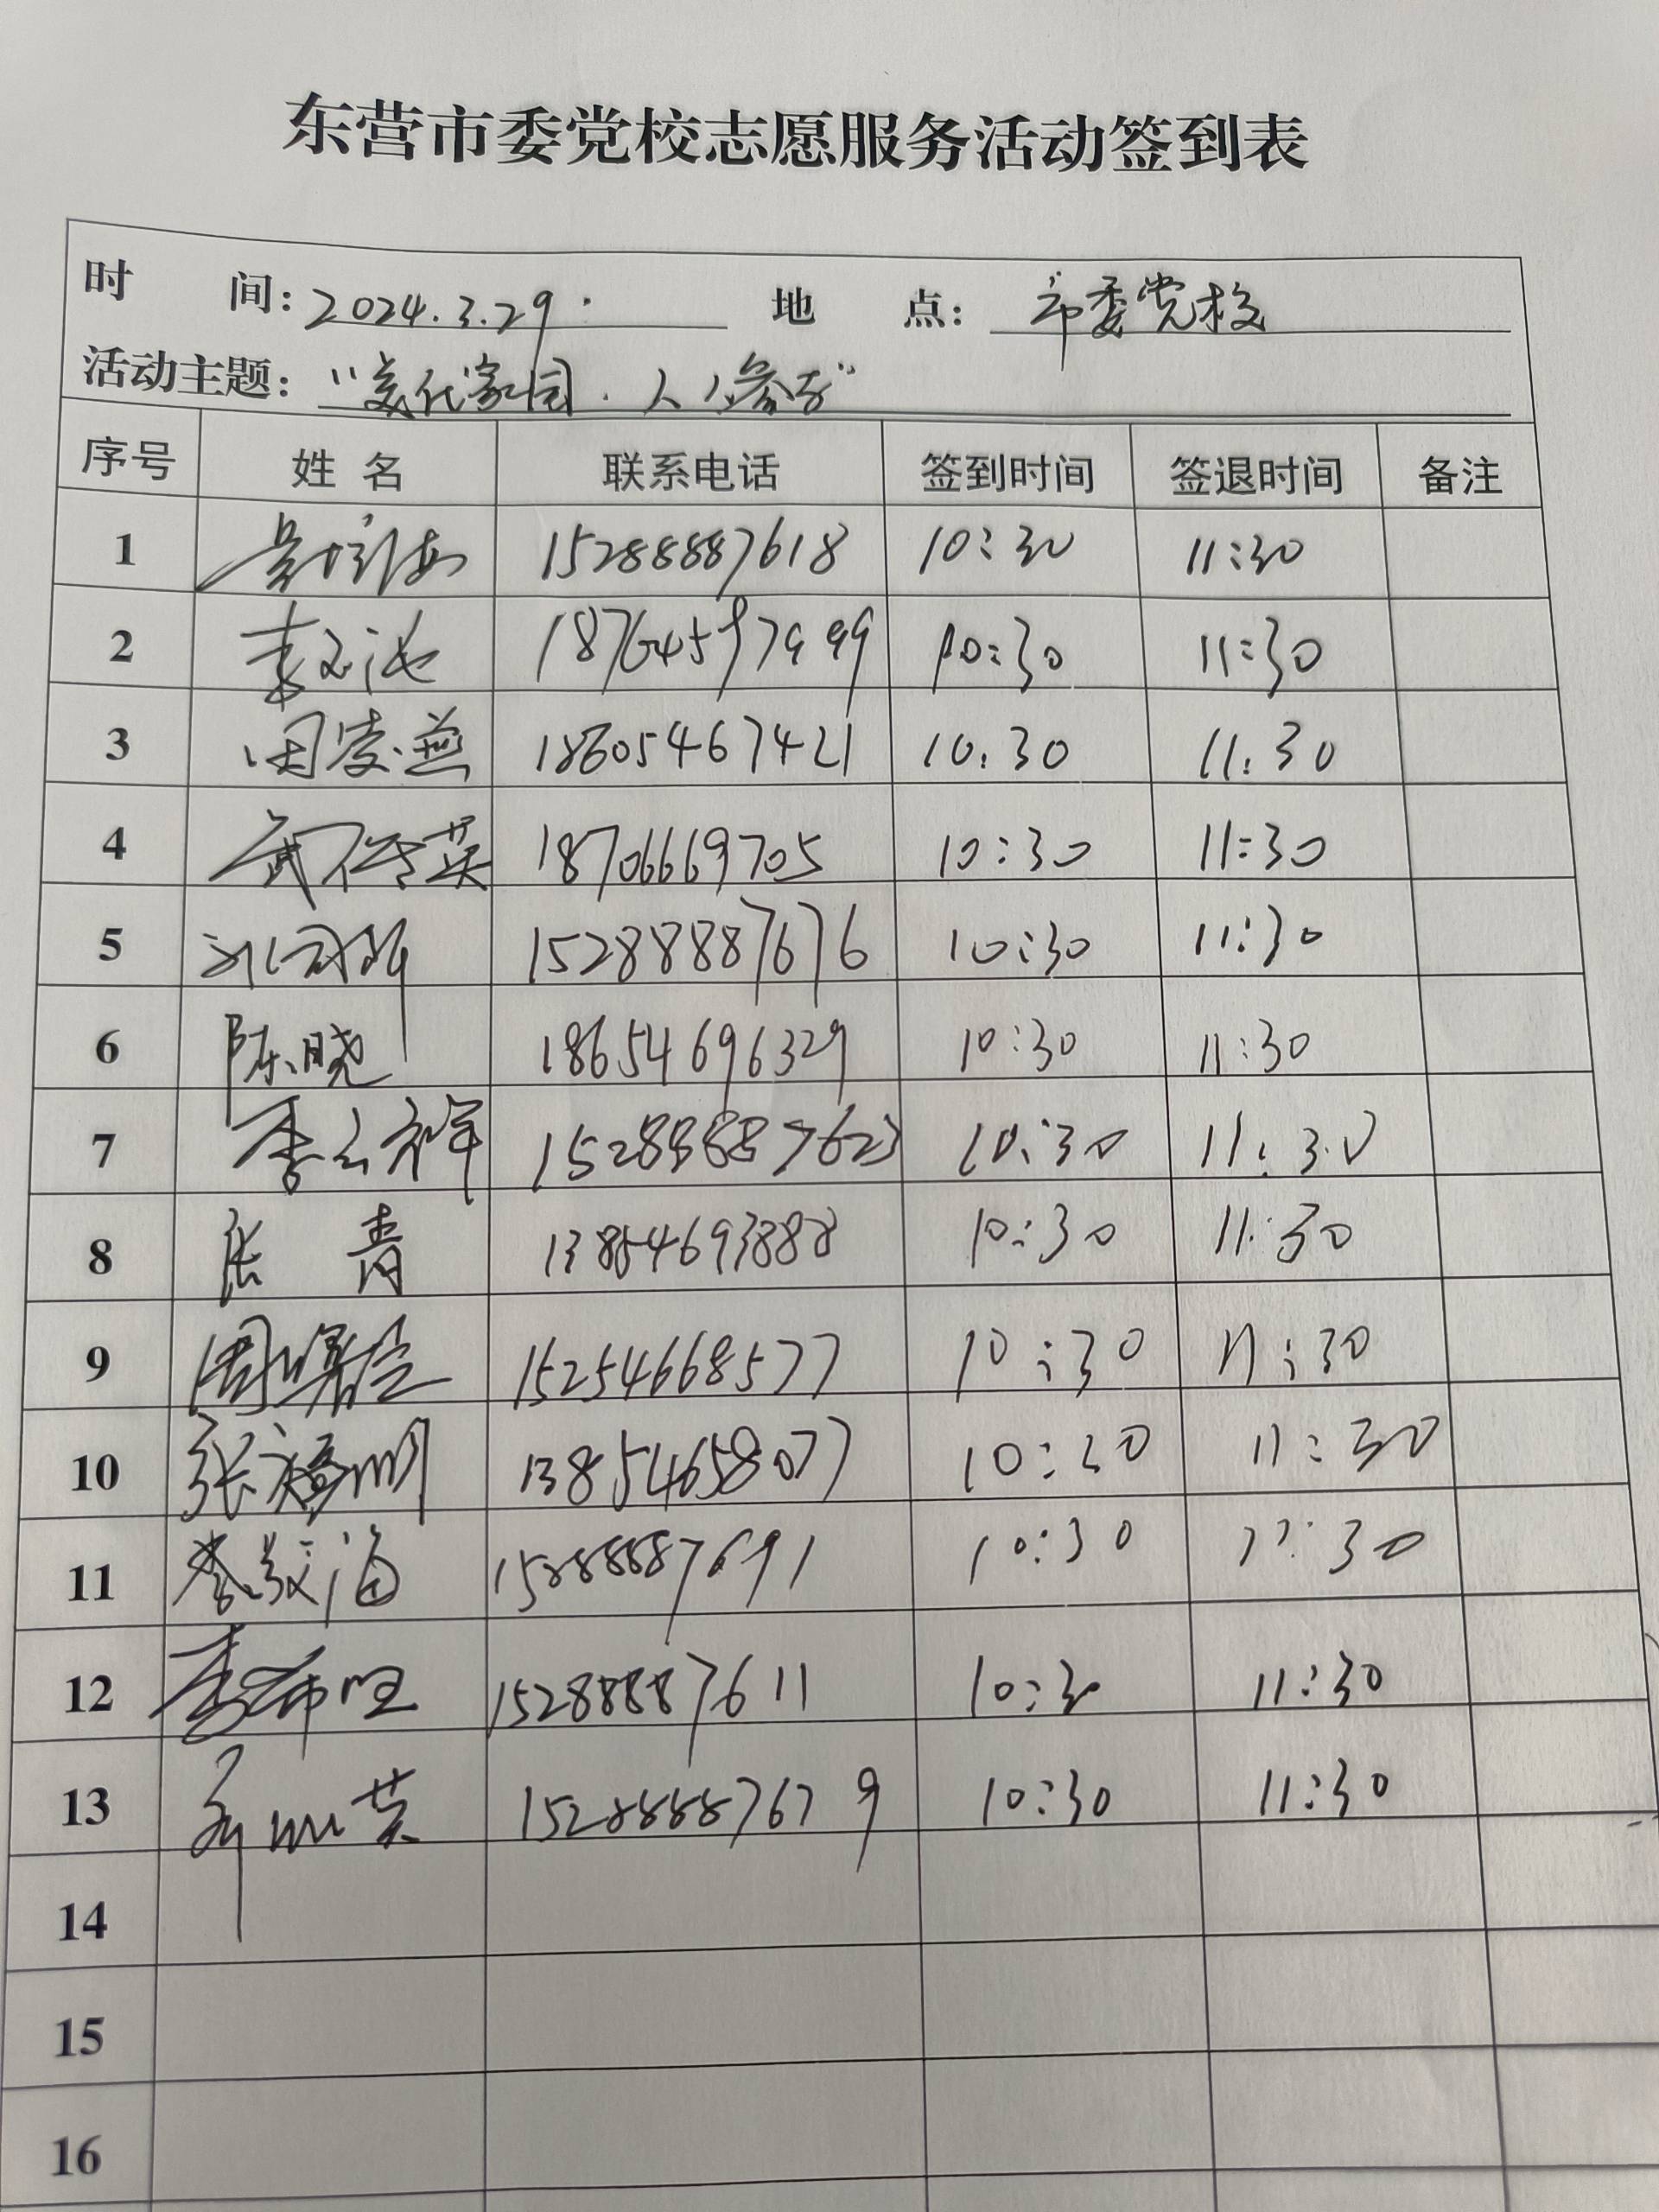 东营市委党校志愿服务活动签到表
时 间: 2024.3.29. 地 点: 市委党校
活动主题: “美化家园·人人参与”
序号 姓名 联系电话 签到时间 签退时间 备注
1 15288887618 10:30 11:30
2 李玉池 18764597999 10:30 11:30
3 周凌燕 18605467421 10:30 11:30
4 武传英 18706669705 10:30 11:30
5 15288887676 10:30 11:30
6 陈晓 18654696329 10:30 11:30
7 李云祥 15288887623 10:30 11:30
8 张青 13854693888 10:30 11:30
9 15254668577 10:30 11:30
10 张福明 13854658077 10:30 11:30
11 15288887691 10:30 11:30
12 李希旺 15288887611 10:30 11:30
13 15288887679 10:30 11:30
14
15
16